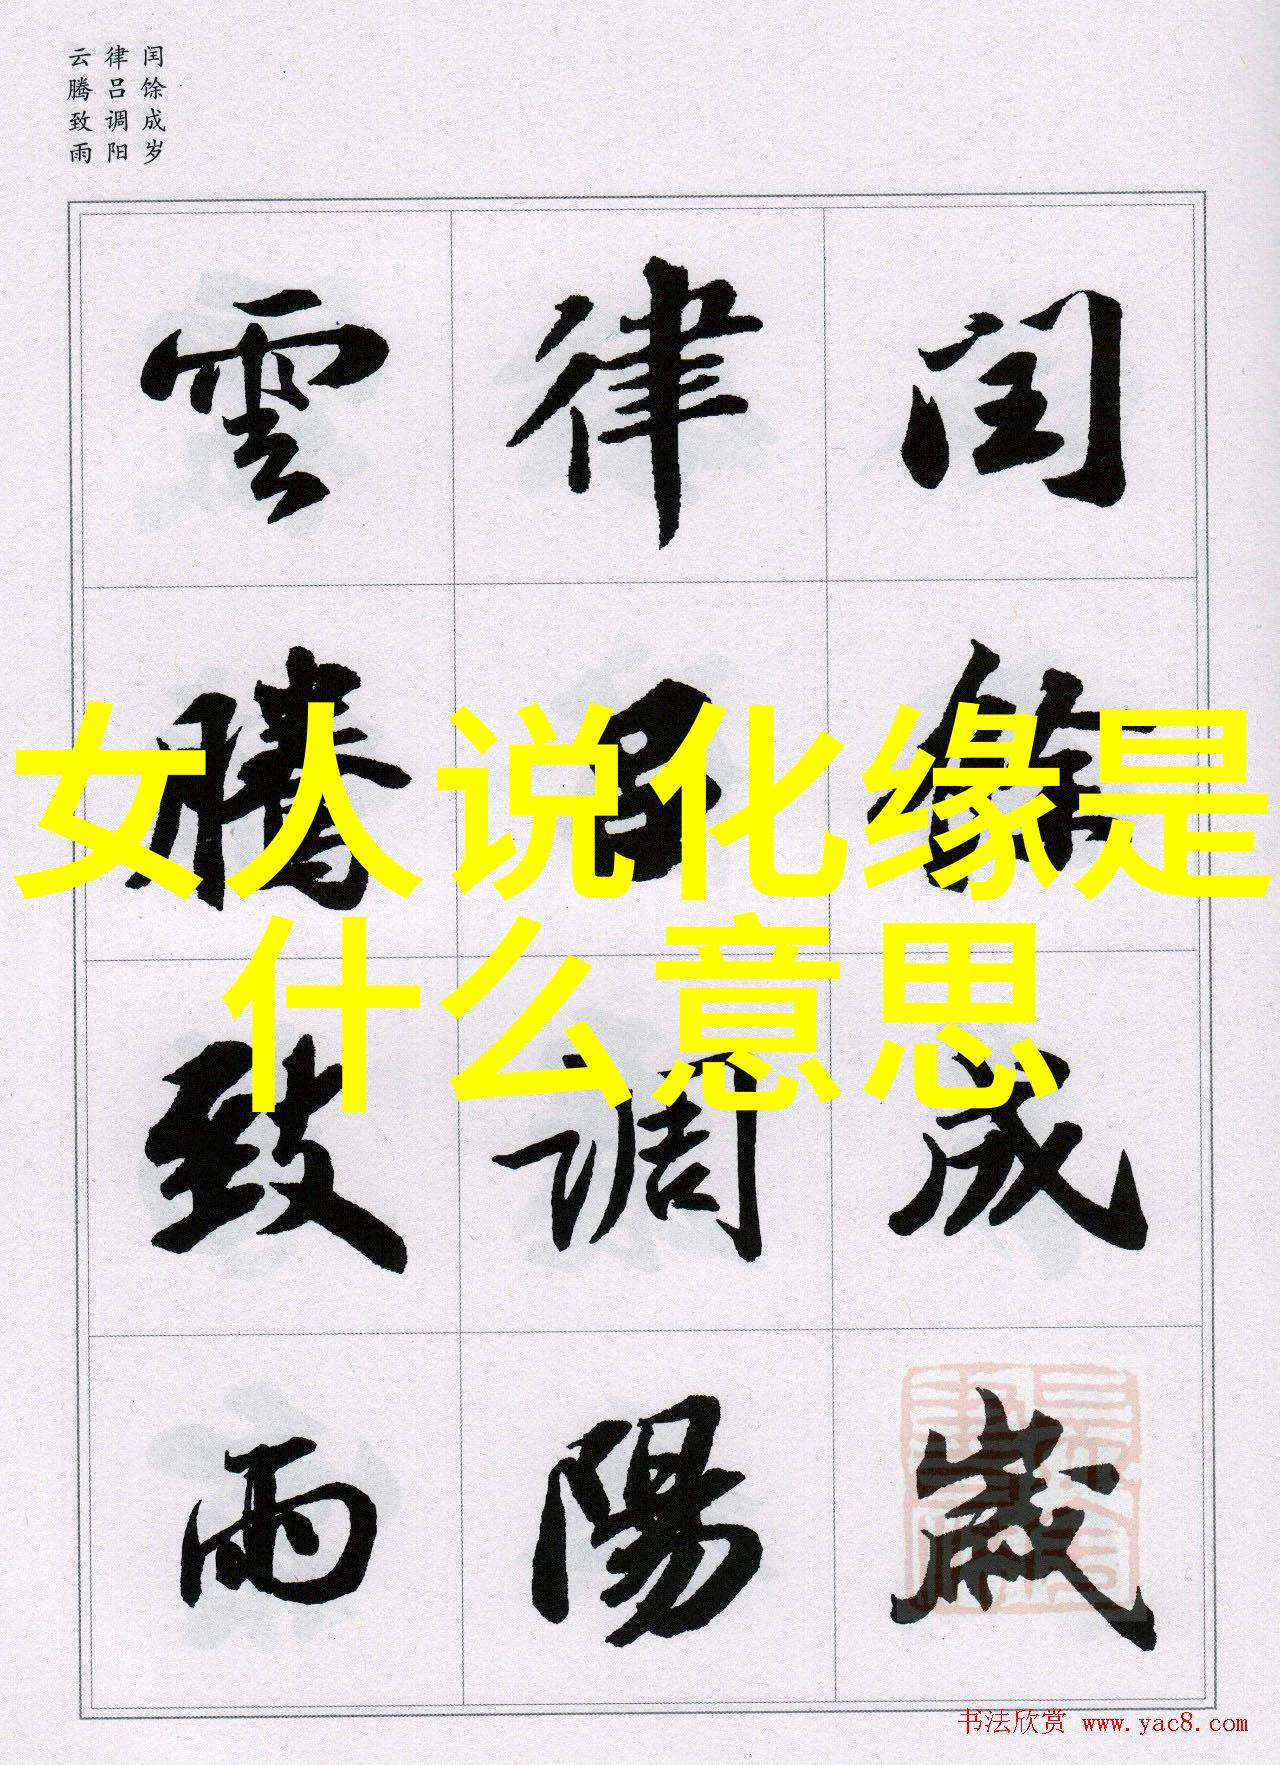 闰馀成岁
律吕调阳
云腾致雨
閏餘成歲
律吕調陽
雲騰致雨
女人说化缘是
什么意思
书法欣赏 www.yac8.com